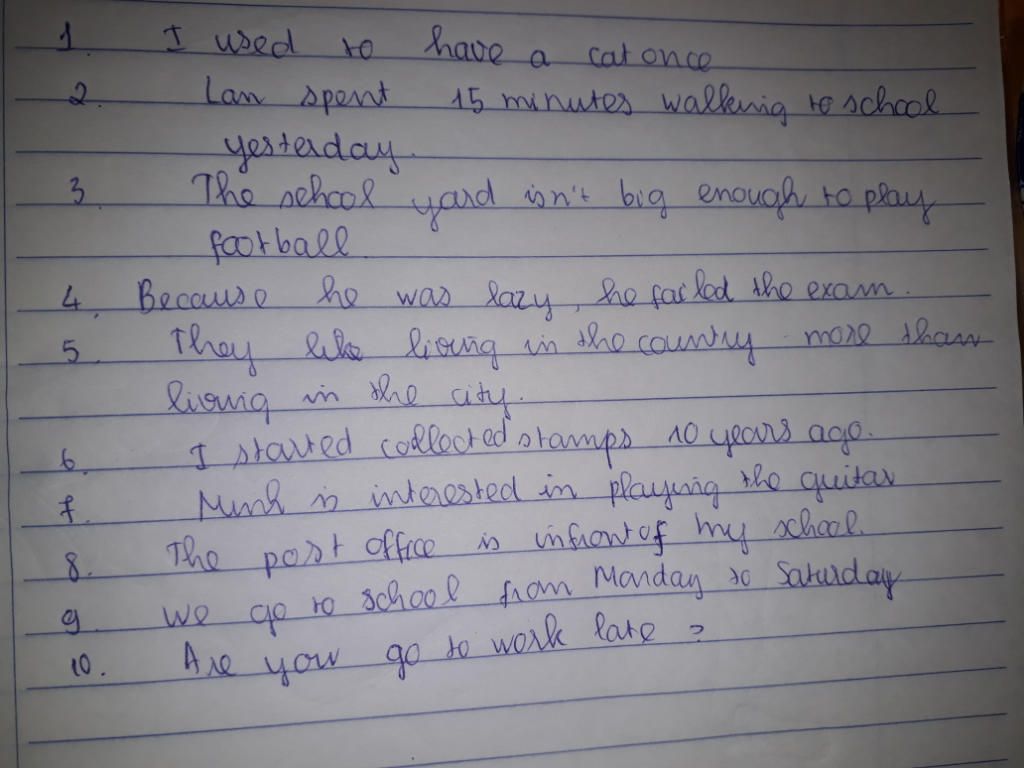 1. I used to have a cat once
2. Lan spent 15 minutes walking to school
yesterday.
3 The school yard isn't big enough to play
football
4. Because he was lazy, he failed the exam.
5. They like living in the country more than
living in the city.
6. I started collected stamps 10 years ago.
7. Minh is interested in playing the guitar
8. The post office is infront of my school.
9. We go to school from Monday to Saturday
10. Are you go to work late ?